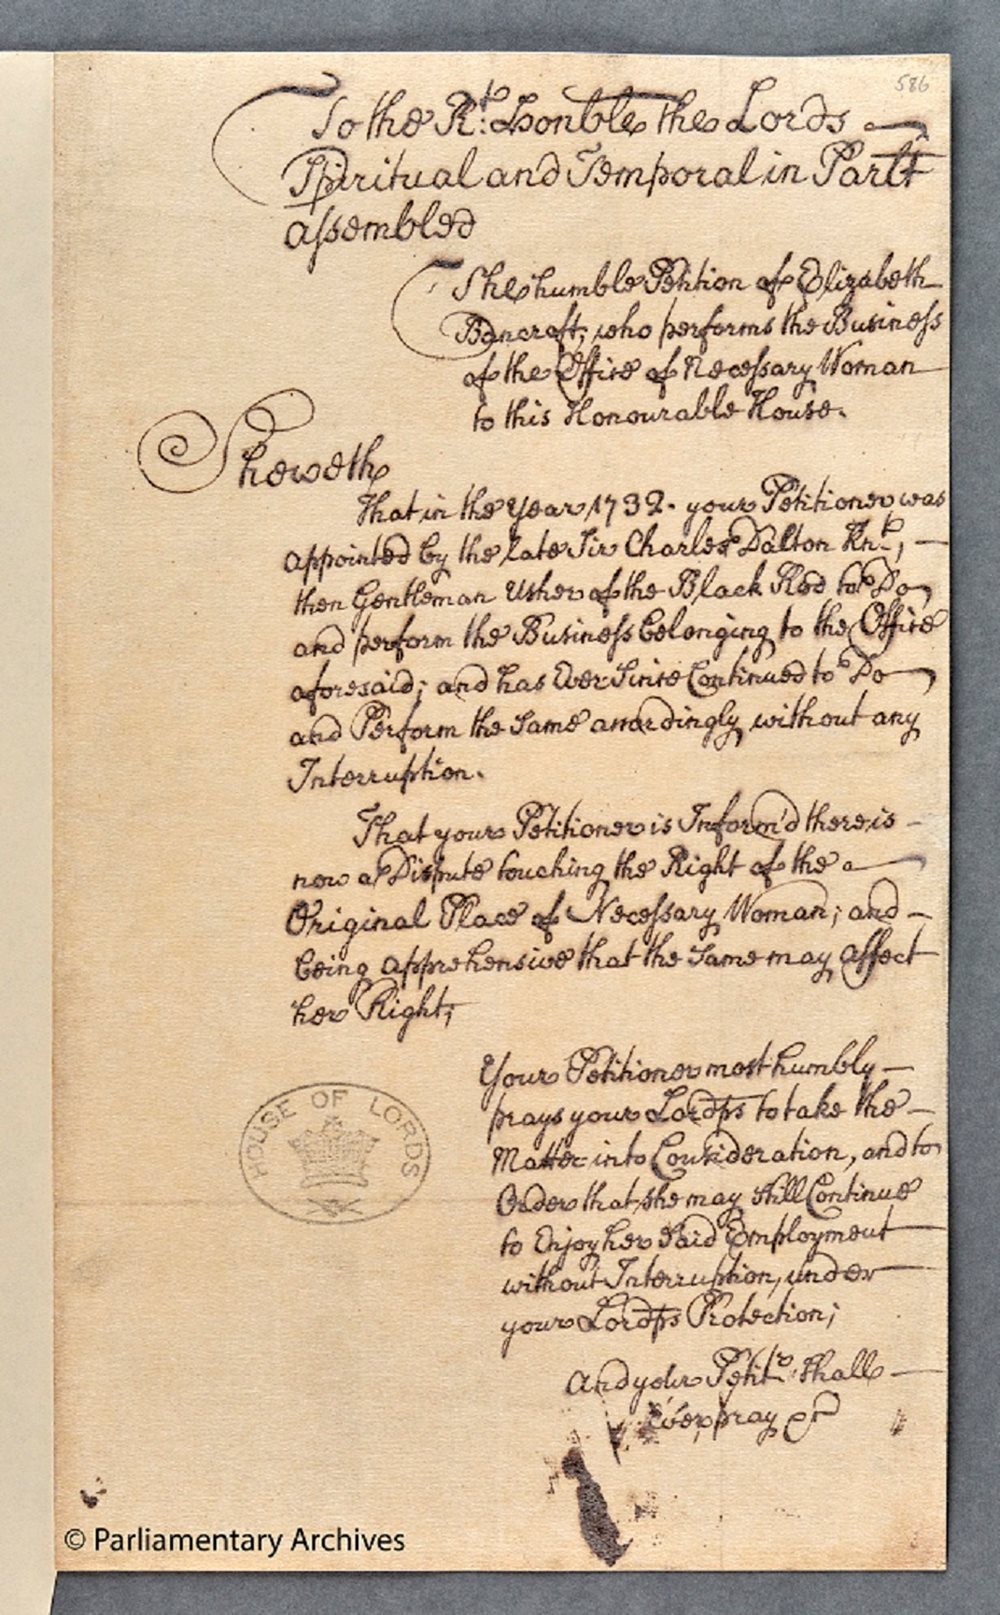 586
To the Rt. Honble the Lords
Spiritual and Temporal in Parlt
assembled
The humble Petition of Elizabeth
Bancroft, who performs the Business
of the Office of Necessary Woman
to this Honourable House.
Sheweth
That in the Year 1732. your Petitioner was
appointed by the late Sir Charles Dalton Knt.,
then Gentleman Usher of the Black Rod to Do
and perform the Business belonging to the Office
aforesaid; and has Ever Since Continued to Do
and Perform the Same accordingly without any
Interruption.
That your Petitioner is Inform'd there is
now a Dispute touching the Right of the
Original Place of Necessary Woman; and
being apprehensive that the Same may affect
her Right;
Your Petitioner most humbly
prays your Lordps to take the
Matter into Consideration, and to
Order that she may still Continue
to Enjoy her Said Employment
without Interruption, under
your Lordps Protection;
And your Petitr. shall
Ever pray &c
HOUSE OF LORDS
© Parliamentary Archives